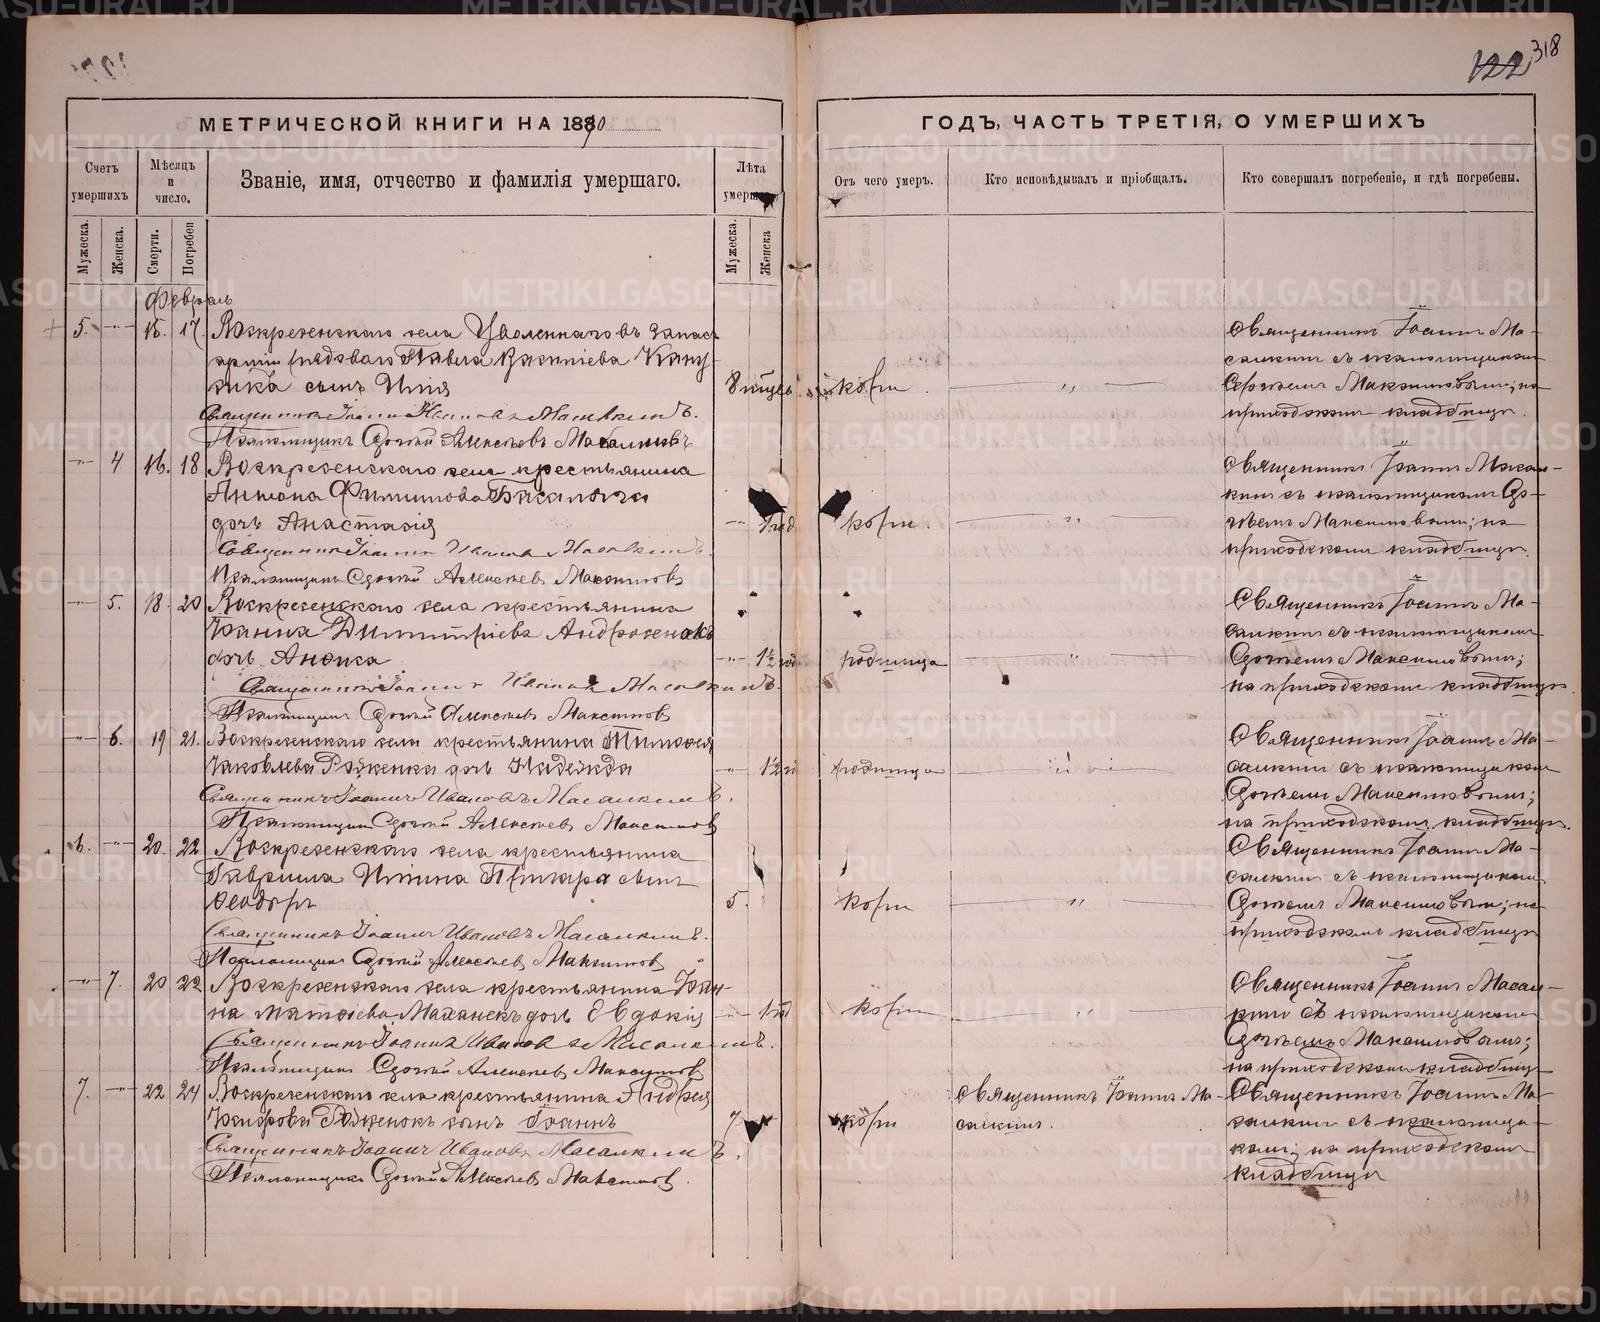 122 318
МЕТРИЧЕСКОЙ КНИГИ НА 1890
ГОДЪ, ЧАСТЬ ТРЕТІЯ, О УМЕРШИХЪ
Счетъ умершихъ
Мѣсяцъ и число.
Званіе, имя, отчество и фамилія умершаго.
Лѣта умершаго
Отъ чего умеръ.
Кто исповѣдывалъ и пріобщалъ.
Кто совершалъ погребеніе, и гдѣ погребены.
Мужеска.
Женска.
Смерти.
Погребен
Мужеска.
Женска
Февраль
5. -"- 15. 17. Воскресенскаго села Уволеннаго въ запасъ
арміи рядоваго Павла
сынъ Илія 8 мѣсяц. кори "
Священникъ Іоаннъ Ивановъ Масалкинъ.
Псаломщикъ Сергѣй Алексѣевъ Максимовъ
Священникъ Іоаннъ Ма-
салкинъ съ псаломщикомъ
Сергѣемъ Максимовымъ; на
приходскомъ кладбищѣ.
-"- 4 16. 18 Воскресенскаго села крестьянина
Антона Филиппова
дочь Анастасія -"- 1 год кори. "
Священникъ Іоаннъ Ивановъ Масалкинъ.
Псаломщикъ Сергѣй Алексѣевъ Максимовъ
Священникъ Іоаннъ Масал-
кинъ съ псаломщикомъ Сер-
гѣемъ Максимовымъ; на
приходскомъ кладбищѣ.
-"- 5. 18. 20 Воскресенскаго села крестьянина
Іоанна Димитріева Андросенокъ
дочь Анна -"- 1½ год родимца "
Священникъ Іоаннъ Ивановъ Масалкинъ.
Псаломщикъ Сергѣй Алексѣевъ Максимовъ
Священникъ Іоаннъ Ма-
салкинъ съ псаломщикомъ
Сергѣемъ Максимовымъ;
на приходскомъ кладбищѣ.
-"- 6. 19 21. Воскресенскаго села крестьянина Тимофея
Іаковлева дочь Надежда -"- 1½ г родимца "
Священникъ Іоаннъ Ивановъ Масалкинъ.
Псаломщикъ Сергѣй Алексѣевъ Максимовъ
Священникъ Іоаннъ Ма-
салкинъ съ псаломщикомъ
Сергѣемъ Максимовымъ;
на приходскомъ кладбищѣ.
6. -"- 20. 22 Воскресенскаго села крестьянина
Гавриила Ильина сынъ
Ѳеодоръ 5. кори "
Священникъ Іоаннъ Ивановъ Масалкинъ.
Псаломщикъ Сергѣй Алексѣевъ Максимовъ
Священникъ Іоаннъ Ма-
салкинъ съ псаломщикомъ
Сергѣемъ Максимовымъ; на
приходскомъ кладбищѣ
-"- 7. 20 22 Воскресенскаго села крестьянина Іоан-
на Матѳіева дочь Евдокія -"- 1 год кори "
Священникъ Іоаннъ Ивановъ Масалкинъ.
Псаломщикъ Сергѣй Алексѣевъ Максимовъ
Священникъ Іоаннъ Масал-
кинъ съ псаломщикомъ
Сергѣемъ Максимовымъ;
на приходскомъ кладбищѣ
7. -"- 22 24 Воскресенскаго села крестьянина Андрея
сынъ Іоаннъ 7 кори
Священникъ Іоаннъ Ивановъ Масалкинъ.
Псаломщикъ Сергѣй Алексѣевъ Максимовъ.
Священникъ Іоаннъ Ма-
салкинъ.
Священникъ Іоаннъ Ма-
салкинъ съ псаломщи-
комъ; на приходскомъ
кладбищѣ
METRIKI.GASO-URAL.RU